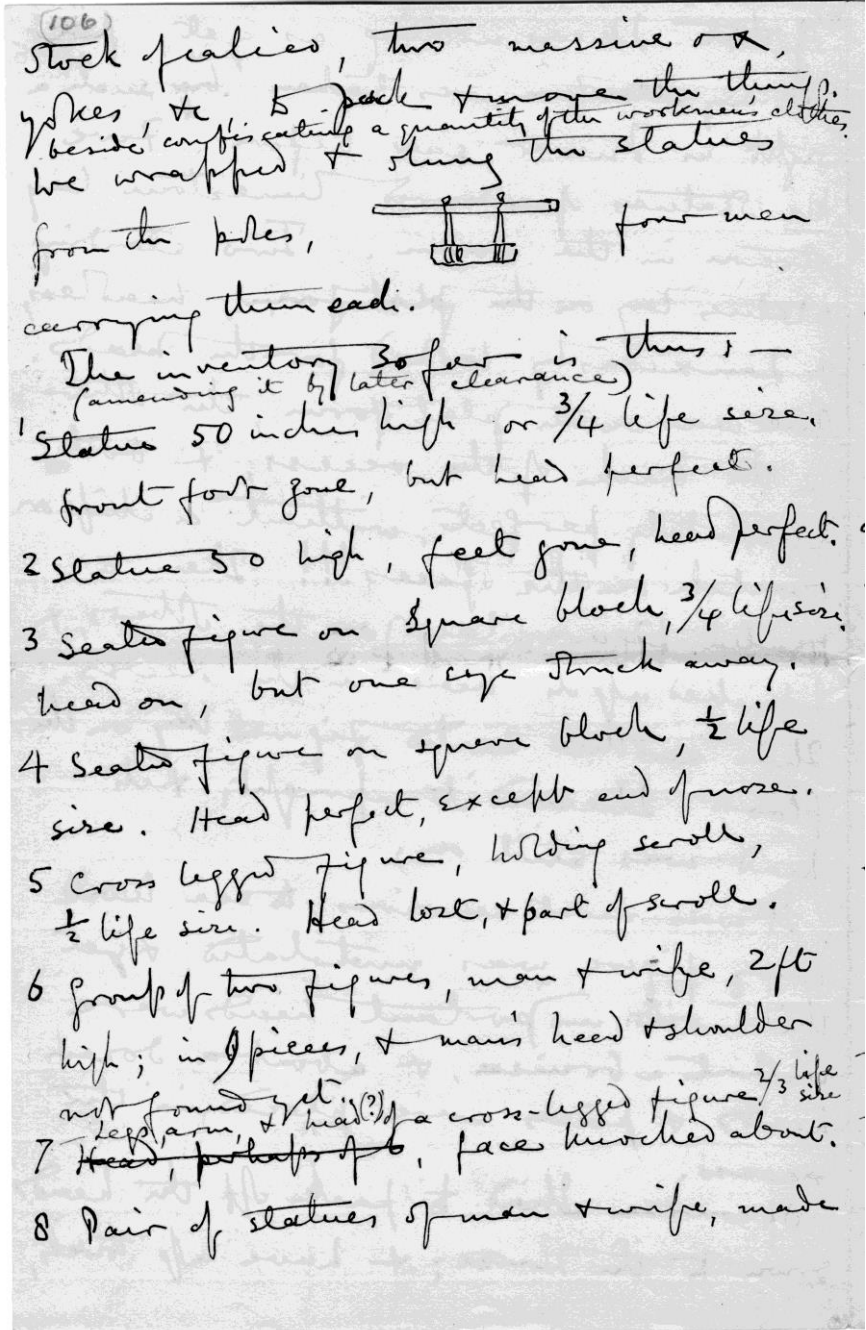 (106)
Stock of calico, two massive ox
yokes, &c, to pack & move the things.
beside confiscating a quantity of the workmen's clothes.
We wrapped & slung the statues
from the poles, four men
carrying them each.
The inventory so far is thus :—
(amending it by later clearance)
1 Statue 50 inches high or 3/4 life size.
front foot gone, but head perfect.
2 Statue 50 high, feet gone, head perfect.
3 Seated figure on square block, 3/4 life size.
head on, but one eye struck away.
4 Seated figure on square block, ½ life
size. Head perfect, except end of nose.
5 Cross legged figure, holding scroll,
½ life size. Head lost, & part of scroll.
6 Group of two figures, man & wife, 2 ft
high; in 9 pieces, & man's head & shoulder
not found yet.
Legs, arm, & head (?) of a cross-legged figure 2/3 life size
7 Head, perhaps of 6, face knocked about.
8 Pair of statues of man & wife, made